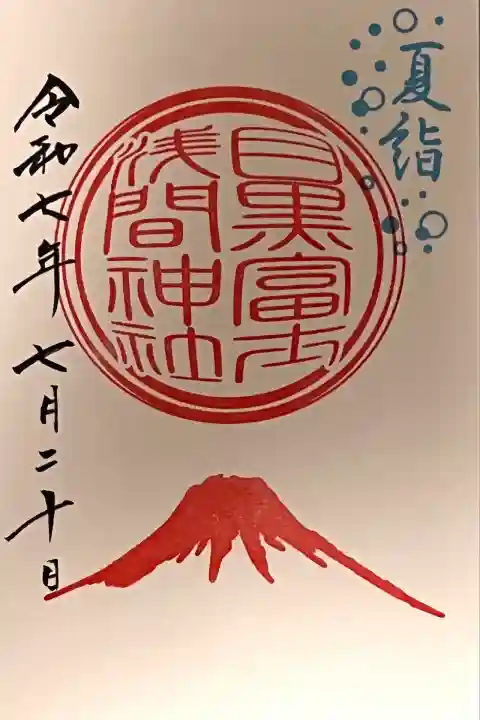 夏詣
目黒富士
浅間神社
令和七年七月二十日